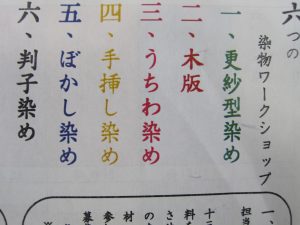 六つの
染物ワークショップ
一、更紗型染め
二、木版
三、うちわ染め
四、手挿し染め
五、ぼかし染め
六、判子染め
一、
担当
十三
料を
させ
のう
材
参
募
※